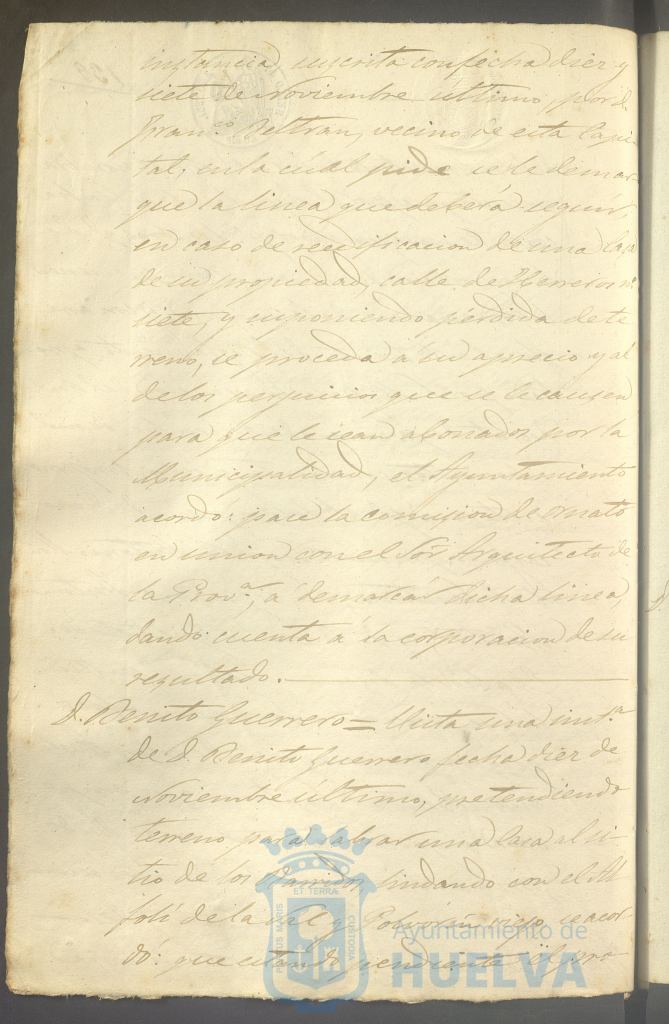 instancia, suscrita con fecha diez y
siete de Noviembre último, por D.
Fran.co Beltran, vecino de esta Capi-
tal, en la cual pide se le demar-
que la linea que deberá seguir,
en caso de reedificacion de una Casa
de su propiedad, calle de Herreros nº
siete, y suponiendo pérdida de te
rreno, se proceda a su aprecio y al
de los perjuicios que se le causen
para que le sean abonados por la
Municipalidad, el Ayuntamiento
acordó: pase la comision de ornato
en union con el Sor Arquitecto de
la Prov.a, á demarcar dicha linea,
dando cuenta á la corporacion de su
resultado.
D. Benito Guerrero = Vista una inst.a
de D. Benito Guerrero fecha diez de
Noviembre último, pretendiendo
terreno para labrar una Casa al si-
tio de los lindando con el Al
folí de la Sal y Polvorin viejo, se acor-
dó: que estando pendiente el pro-
PORTUS MARIS ET TERRÆ CUSTODIA
Ayuntamiento de
HUELVA